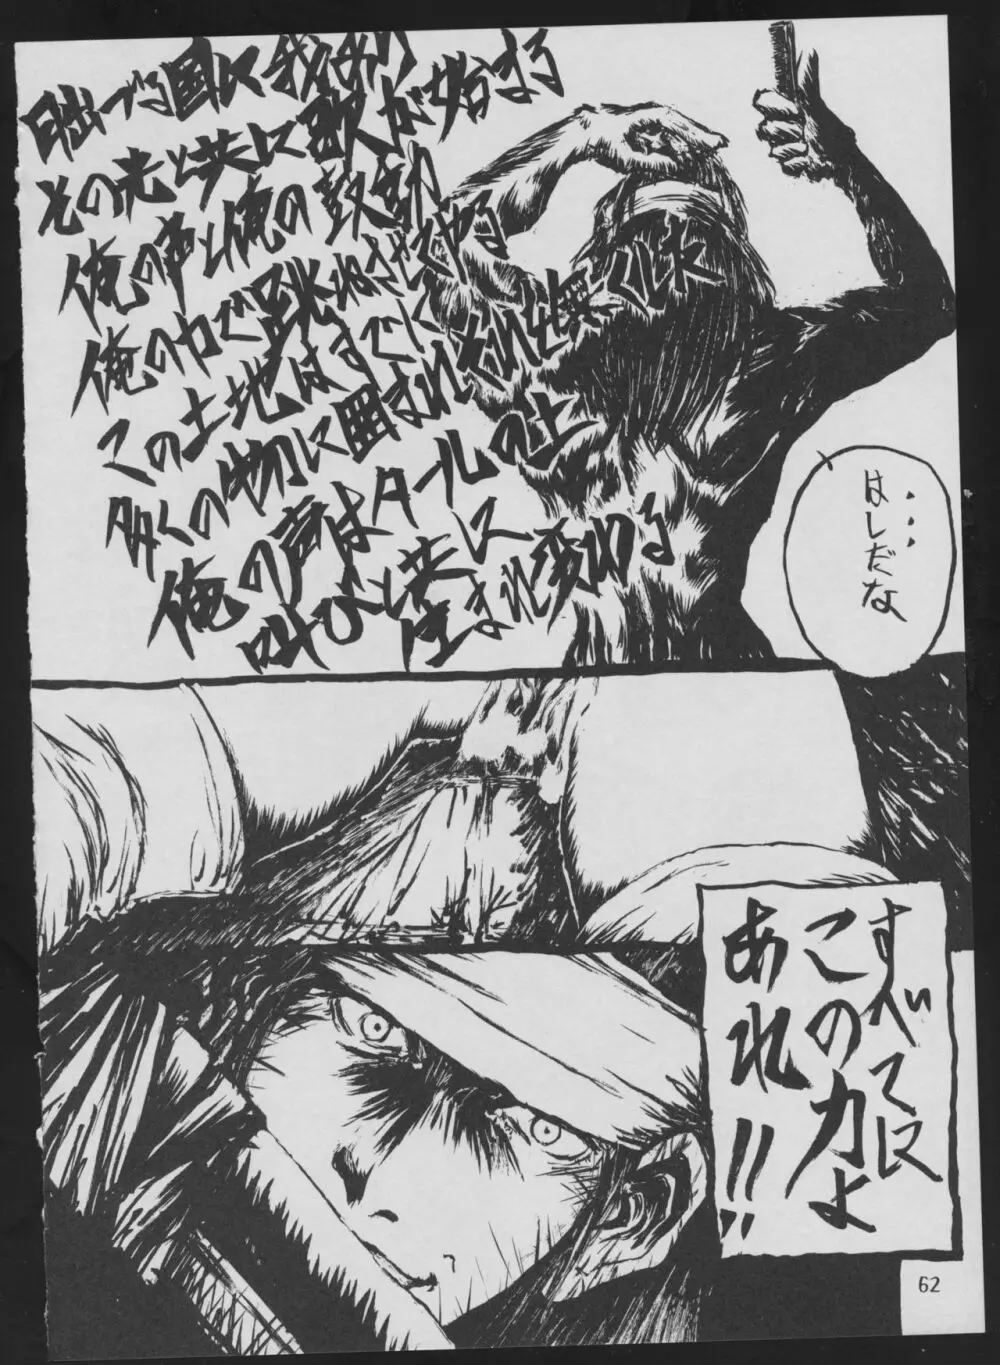 日出づる国に我あり
その光と共に歌が始まる
俺の声と俺の鼓動
俺の力で跳ねさせてやる
この土地はすでに
多くの物に囲まれくれも無くした
俺の声はタールの上
叫びと共に
生まれ変わる
・・・
はしだな
すべてに
この力よ
あれ!!
62